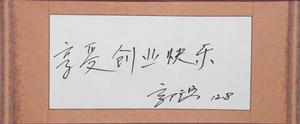 享受创业快乐
12.8